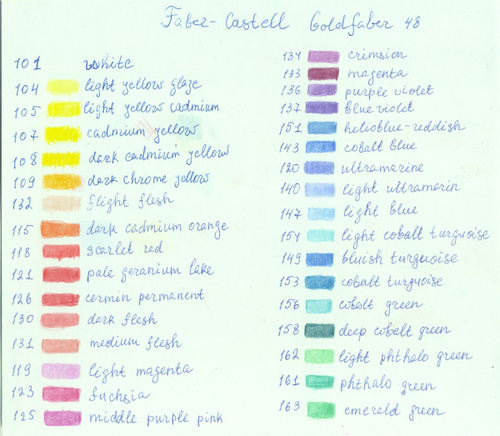 Faber-Castell Goldfaber 48
101 white
104 light yellow glaze
105 light yellow cadmium
107 cadmium yellow
108 dark cadmium yellow
109 dark chrome yellow
132 flight flesh
115 dark cadmium orange
118 scarlet red
121 pale geranium lake
126 cermin permanent
130 dark flesh
131 medium flesh
119 light magenta
123 fuchsia
125 middle purple pink
134 crimsion
133 magenta
136 purple violet
137 blue violet
151 helioblue-reddish
143 cobalt blue
120 ultramarine
140 light ultramarin
147 light blue
154 light cobalt turguoise
149 bluish turguoise
153 cobalt turguoise
156 cobalt green
158 deep cobalt green
162 light phthalo green
161 phthalo green
163 emerald green